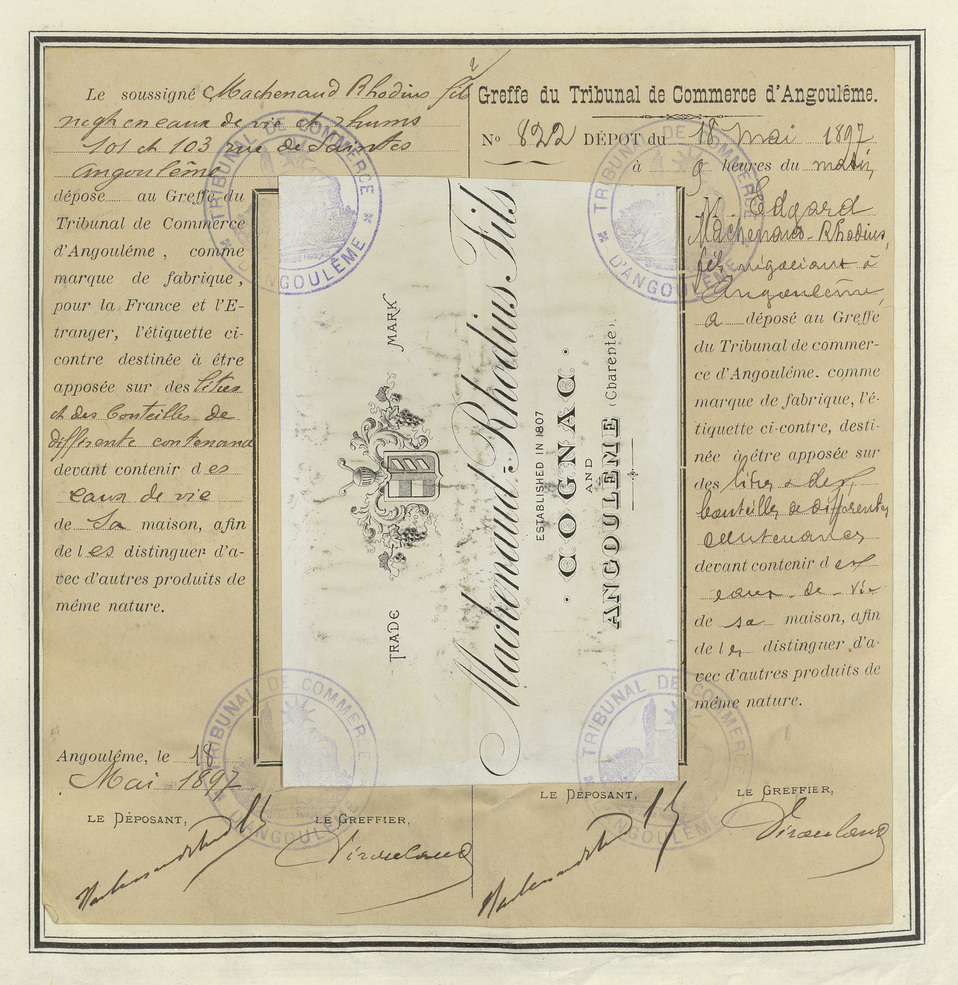 Le soussigné Machenaud Rhodius fils
negt en eaux de vie et rhums
101 et 103 rue de Saintes
Angoulême
dépose au Greffe du
Tribunal de Commerce
d'Angoulême, comme
marque de fabrique,
pour la France et l'E-
tranger, l'étiquette ci-
contre destinée à être
apposée sur des litres
et des bouteilles de
différente contenance
devant contenir des
eaux de vie
de sa maison, afin
de les distinguer d'a-
vec d'autres produits de
même nature.
Angoulême, le 18
Mai 1897
LE DÉPOSANT,
LE GREFFIER,
TRADE MARK
Machenaud-Rhodius Fils
ESTABLISHED IN 1807
· COGNAC ·
AND
ANGOULEME (Charente).
Greffe du Tribunal de Commerce d'Angoulême.
No 822 DÉPOT du 18 Mai 1897
à 9 heures du matin
M. Edgard
Machenaud-Rhodius,
fils, négociant à
Angoulême,
a déposé au Greffe
du Tribunal de commer-
ce d'Angoulême. comme
marque de fabrique, l'é-
tiquette ci-contre, desti-
née à être apposée sur
des litres & des
bouteilles de différentes
contenances
devant contenir des
eaux-de-vie
de sa maison, afin
de les distinguer d'a-
vec d'autres produits de
même nature.
LE DÉPOSANT,
LE GREFFIER,
TRIBUNAL DE COMMERCE
D'ANGOULÊME
TRIBUNAL DE COMMERCE
D'ANGOULÊME
TRIBUNAL DE COMMERCE
D'ANGOULÊME
TRIBUNAL DE COMMERCE
D'ANGOULÊME